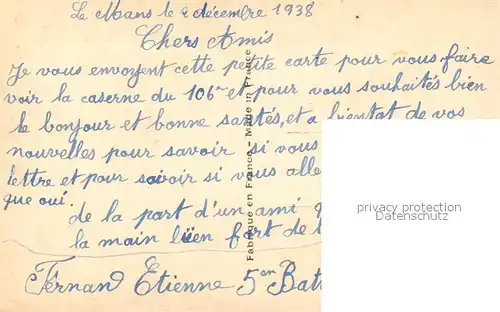 Le Mans le 2 décembre 1938
Chers Amis
Je vous envoyent cette petite carte pour vous faire
voir la caserne du 106 et pour vous souhaités bien
le bonjour et bonne santés, et a bientat de vos
nouvelles pour savoir si vous
lettre et pour savoir si vous alle
que oui.
de la part d'un ami
la main bien fort de
Fernand Etienne 5en Batt
Fabriqué en France - Made in France
privacy protection
Datenschutz